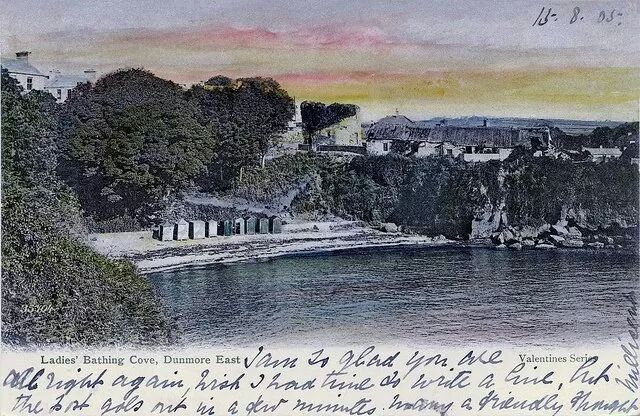 15. 8. 05.
Ladies' Bathing Cove, Dunmore East
Valentines Series
I am so glad you are
all right again, Wish I had time to write a line, but
the post goes out in a few minutes. Many a friendly thought